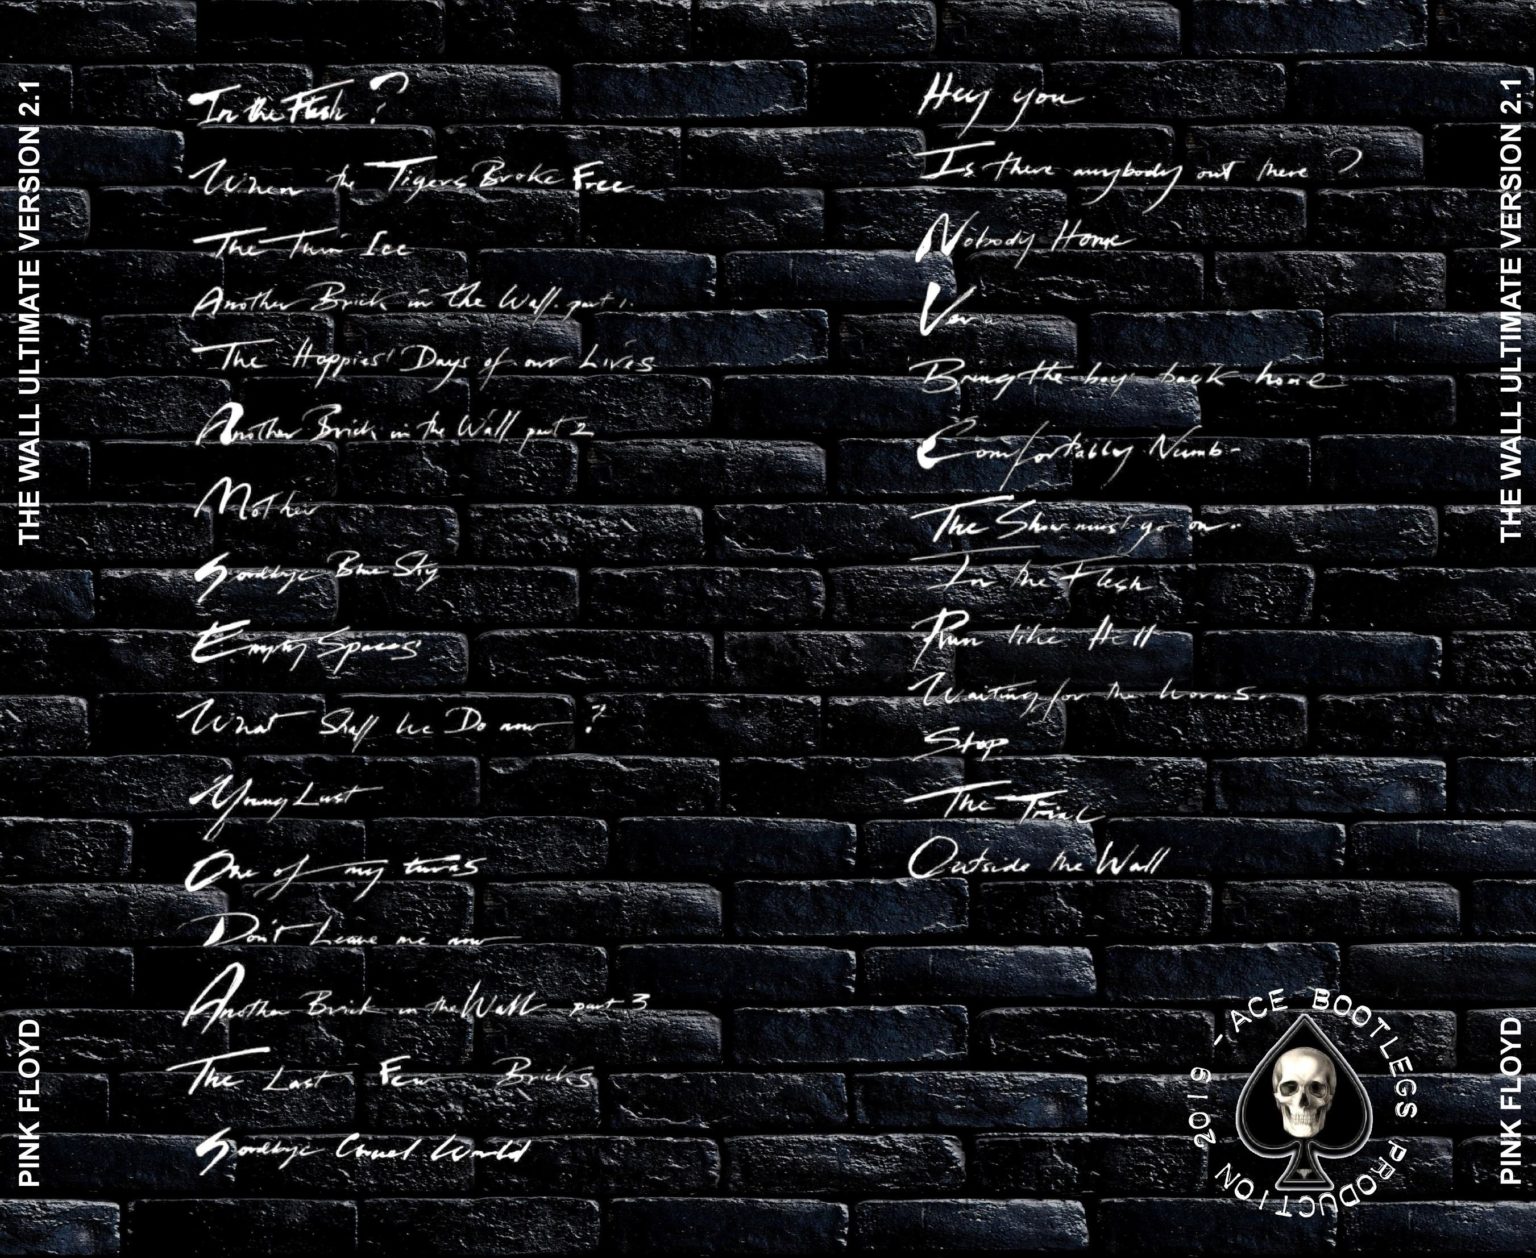 THE WALL ULTIMATE VERSION 2.1
PINK FLOYD
In the Flesh ?
When the Tigers Broke Free
The Thin Ice
Another Brick in the Wall. part 1.
The Happiest Days of our Lives
Another Brick in the Wall part 2
Mother
Goodbye Blue Sky
Empty Spaces
What Shall We Do now ?
Young Lust
One of my turns
Don't Leave me now
Another Brick in the Wall part 3
The Last Few Bricks
Goodbye Cruel World
Hey you
Is there anybody out there ?
Nobody Home
Vera
Bring the boys back home
Comfortably Numb-
The Show must go on.
In the Flesh
Run like Hell
Waiting for the worms.
Stop
The Trial
Outside the Wall
2019 - ACE BOOTLEGS PRODUCTION
THE WALL ULTIMATE VERSION 2.1
PINK FLOYD